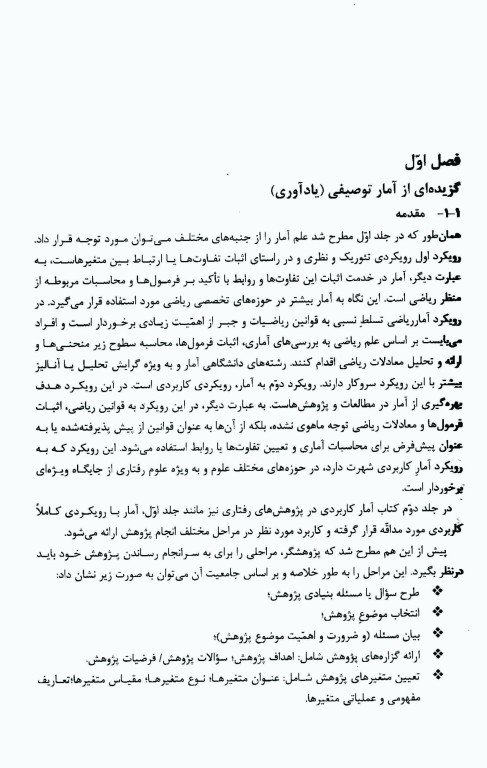 فصل اوّل
گزیده‌ای از آمار توصیفی (یادآوری)
۱-۱- مقدمه
همان‌طور که در جلد اوّل مطرح شد علم آمار را از جنبه‌های مختلف می‌توان مورد توجه قرار داد.
رویکرد اول رویکردی تئوریک و نظری و در راستای اثبات تفاوت‌ها یا ارتباط بین متغیرهاست، به
عبارت دیگر، آمار در خدمت اثبات این تفاوت‌ها و روابط با تأکید بر فرمول‌ها و محاسبات مربوطه از
منظر ریاضی است. این نگاه به آمار بیشتر در حوزه‌های تخصصی ریاضی مورد استفاده قرار می‌گیرد. در
رویکرد آمارریاضی تسلطِ نسبی به قوانین ریاضیات و جبر از اهمّیت زیادی برخوردار است و افراد
می‌بایست بر اساس علم ریاضی به بررسی‌های آماری، اثبات فرمول‌ها، محاسبه سطوح زیر منحنی‌ها و
ارائه و تحلیل معادلات ریاضی اقدام کنند. رشته‌های دانشگاهی آمار و به ویژه گرایش تحلیل یا آنالیز
بیشتر با این رویکرد سروکار دارند. رویکرد دوّم به آمار، رویکردی کاربردی است. در این رویکرد هدف
بهره‌گیری از آمار در مطالعات و پژوهش‌هاست. به عبارت دیگر، در این رویکرد به قوانین ریاضی، اثبات
فرمول‌ها و معادلات ریاضی توجه ماهوی نشده، بلکه از آن‌ها به عنوان قوانین از پیش پذیرفته‌شده یا به
عنوان پیش‌فرض برای محاسبات آماری و تعیین تفاوت‌ها یا روابط استفاده می‌شود. این رویکرد که به
رویکرد آمارِ کاربردی شهرت دارد، در حوزه‌های مختلف علوم و به ویژه علوم رفتاری از جایگاه ویژه‌ای
برخوردار است.
در جلد دوّم کتاب آمار کاربردی در پژوهش‌های رفتاری نیز مانند جلد اوّل، آمار با رویکردی کاملاً
کاربردی مورد مداقّه قرار گرفته و کاربرد مورد نظر در مراحل مختلف انجام پژوهش ارائه می‌شود.
پیش از این هم مطرح شد که پژوهشگر، مراحلی را برای به سرانجام رساندن پژوهش خود باید
درنظر بگیرد. این مراحل را به طور خلاصه و بر اساس جامعیت آن می‌توان به صورت زیر نشان داد:
❖ طرح سؤال یا مسئله بنیادی پژوهش؛
❖ انتخاب موضوعِ پژوهش؛
❖ بیان مسئله (و ضرورت و اهمّیت موضوع پژوهش)؛
❖ ارائه گزاره‌های پژوهش شامل: اهداف پژوهش؛ سؤالات پژوهش/ فرضیات پژوهش.
❖ تعیین متغیرهای پژوهش شامل: عنوان متغیرها؛ نوع متغیرها؛ مقیاس متغیرها؛تعاریف
مفهومی و عملیاتی متغیرها.